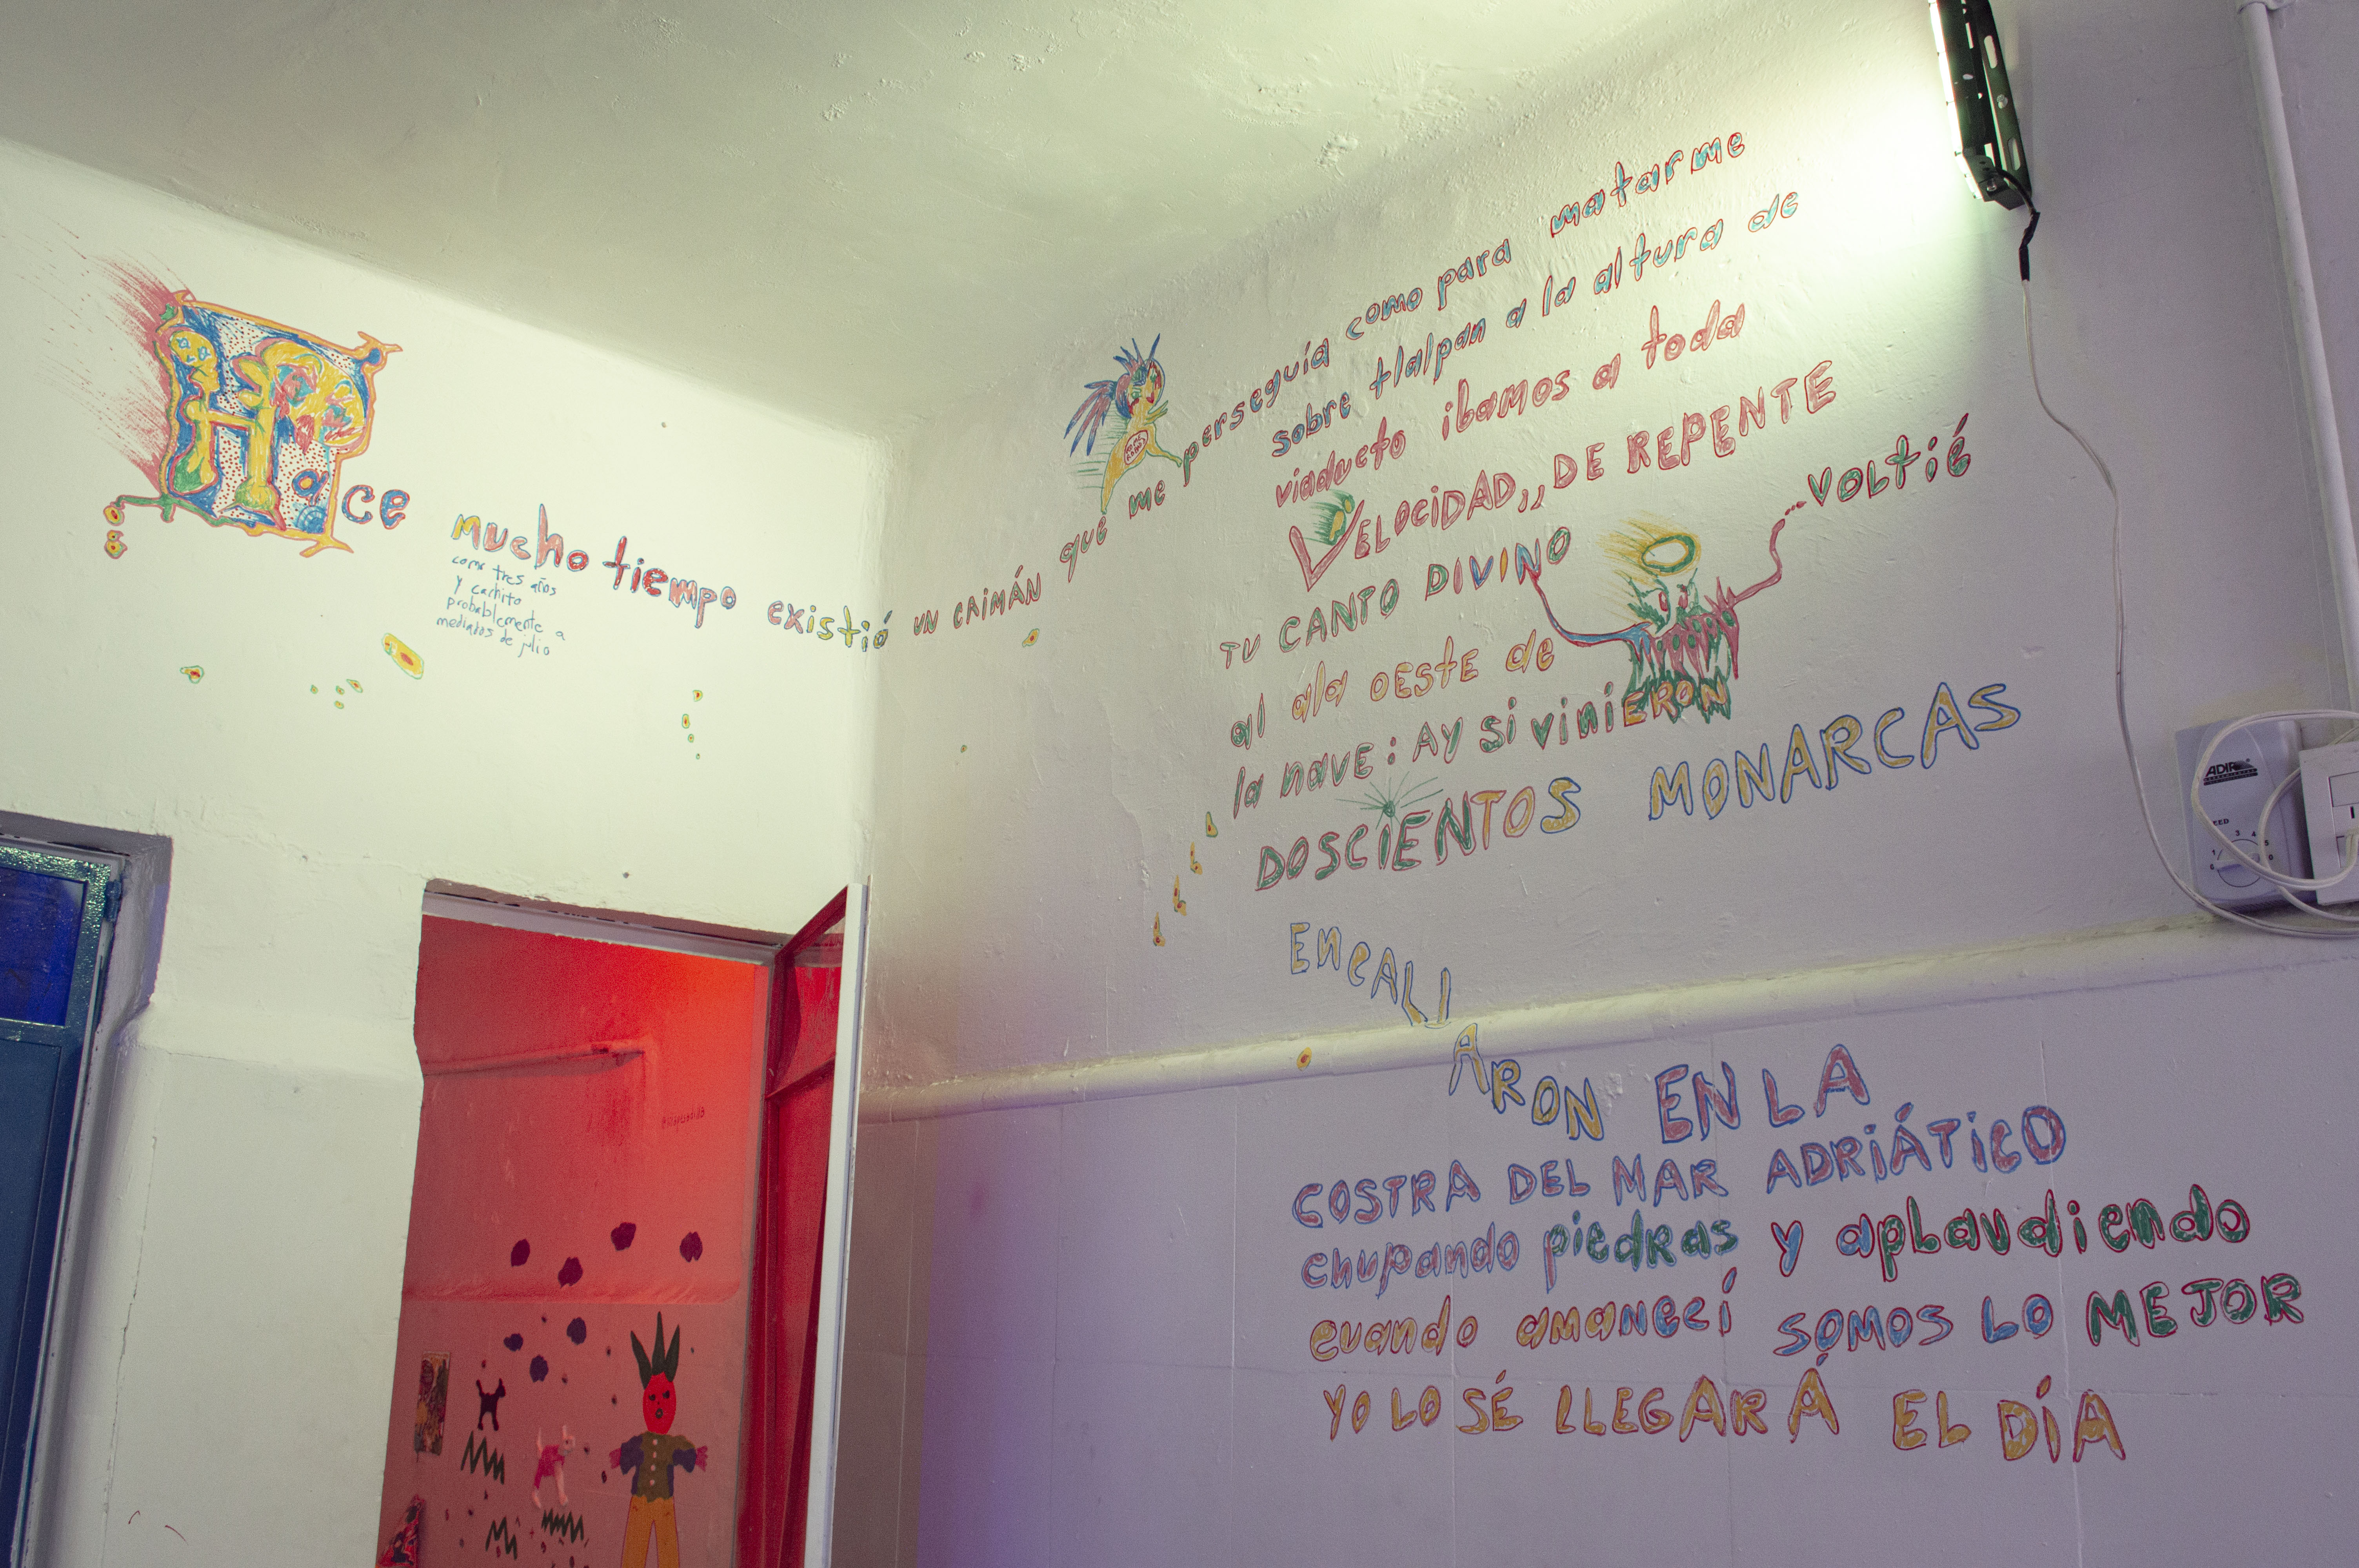 Hace mucho tiempo existió UN CAIMÁN que me perseguía como para matarme
como tres años
y cachito
probablemente a
mediados de julio
sobre tlalpan a la altura de
viaducto ibamos a toda
VELOCIDAD,, DE REPENTE
TU CANTO DIVINO ...VOLTIÉ
al ala OESTE de
la nave: AY Si viniERON
DOSCIENTOS MONARCAS
ENCALLARON EN LA
COSTRA DEL MAR ADRIÁTICO
chupando piedras y aplaudiendo
cuando amanecí SOMOS LO MEJOR
YO LO SÉ LLEGARÁ EL DÍA